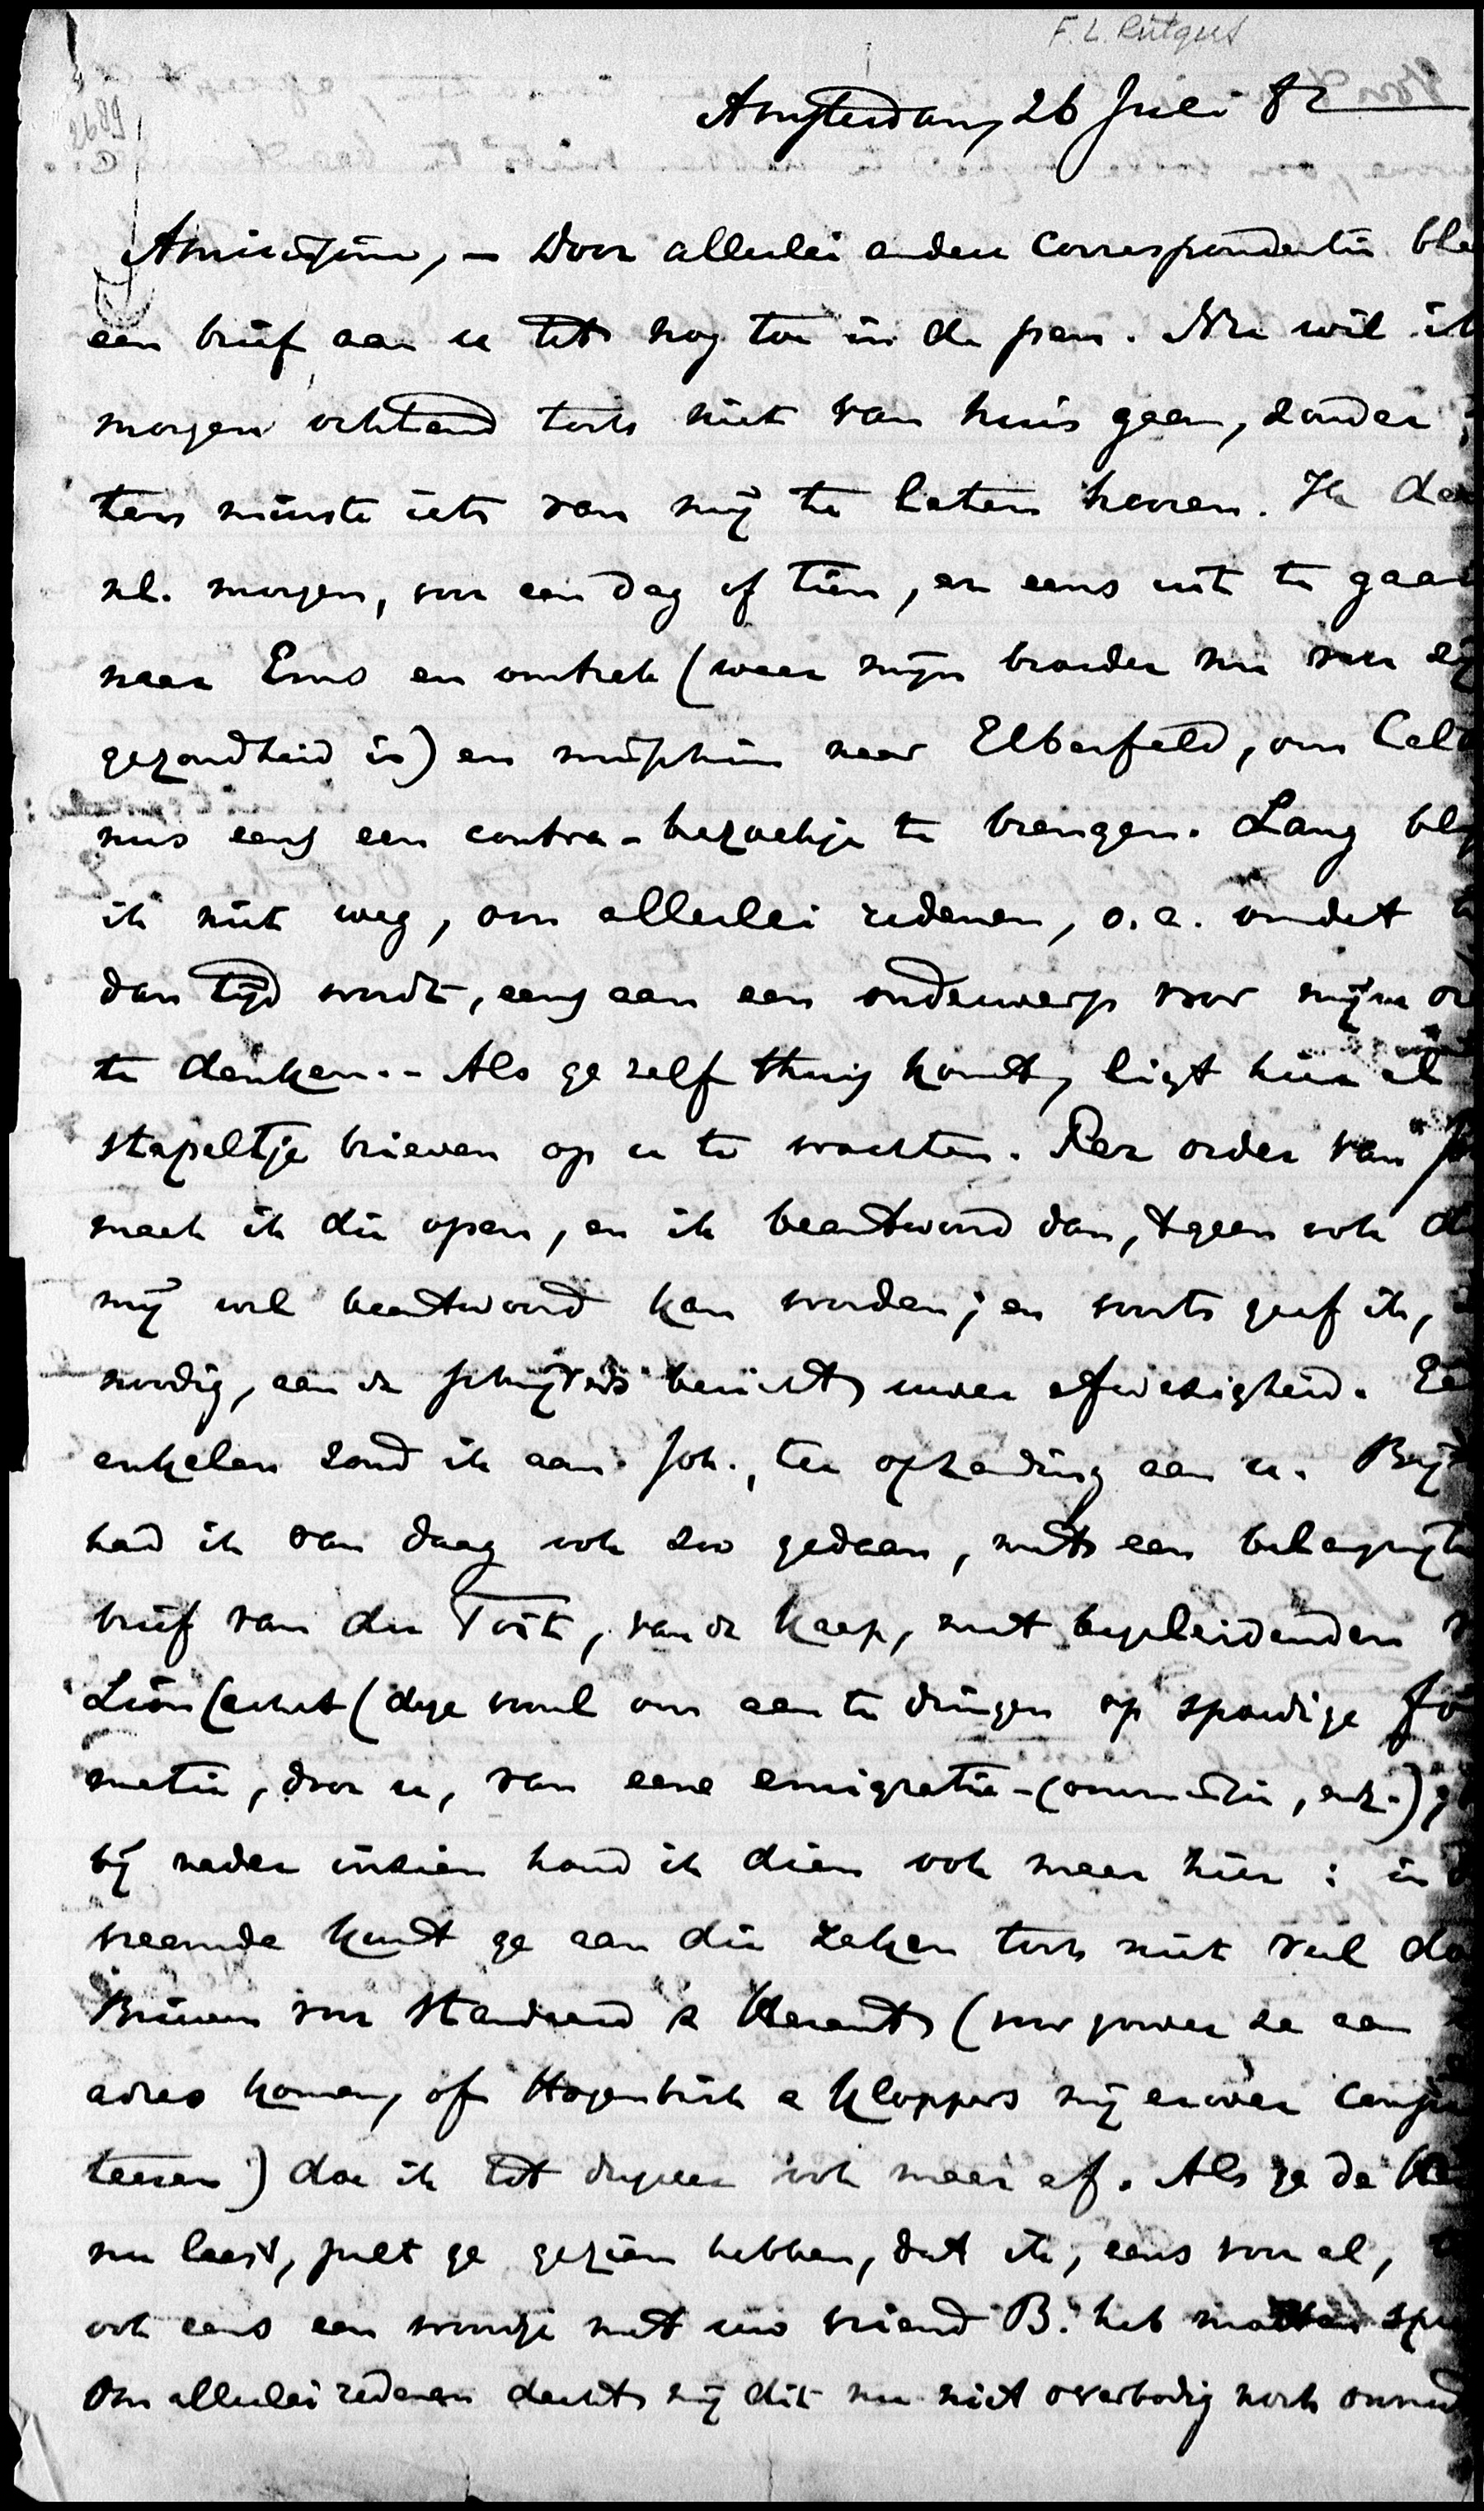 F. L. Rutgers
Amsterdam, 26 Juli 82
Amicissime, – Door allerlei andere correspondentie ble
een brief aan u tot nog toe in de pen. Nu wil ik
morgen ochtend toch niet van huis gaan, zonder
ten minste iets van mij te laten hooren. Ik de
nl. morgen, voor een dag of tien, er eens uit te gaan
naar Ems en omtrek (waar mijn broeder nu voor zij
gezondheid is) en misschien naar Elberfeld, om Cal
nus eens een contra-bezoekje te brengen. Lang bly
ik niet weg, om allerlei redenen, o.a. omdat
dan tijd wordt, eens aan een onderwerp voor mijne or
te denken. – Als ge zelf thuis komt, ligt hier al
stapeltje brieven op u te wachten. Per order van Jo
maak ik die open, en ik beantwoord dan, 'tgeen ook d
mij wel beantwoord kan worden; en voorts geef ik,
noodig, aan de schrijvers bericht uwer afwezigheid. Ee
enkelen zond ik aan Joh., ter opzending aan u. Bij
had ik van daag ook zoo gedaan, met een belangrijk
brief van du Toit, van de Kaap, met begeleidenden
Lion Cachet (deze vooral om aan te dringen op spoedige fo
matie, door u, van eene emigratie-commissie, enz.);
bij nader inzien houd ik dien ook maar hier: in d
vreemde kunt ge aan die zaken toch niet veel do
Brieven voor Standaard & Heraut (voor zoover ze aan
adres komen, of Hogenbirk & Kloppers mij erover consu
teeren) doe ik tot dusver ook maar af. Als ge de He
nu leest, zult ge gezien hebben, dat ik, eens voor al,
ook eens een woordje met uw vriend B. heb moeten spr
Om allerlei redenen dacht mij dit nu niet overbodig noch onnod